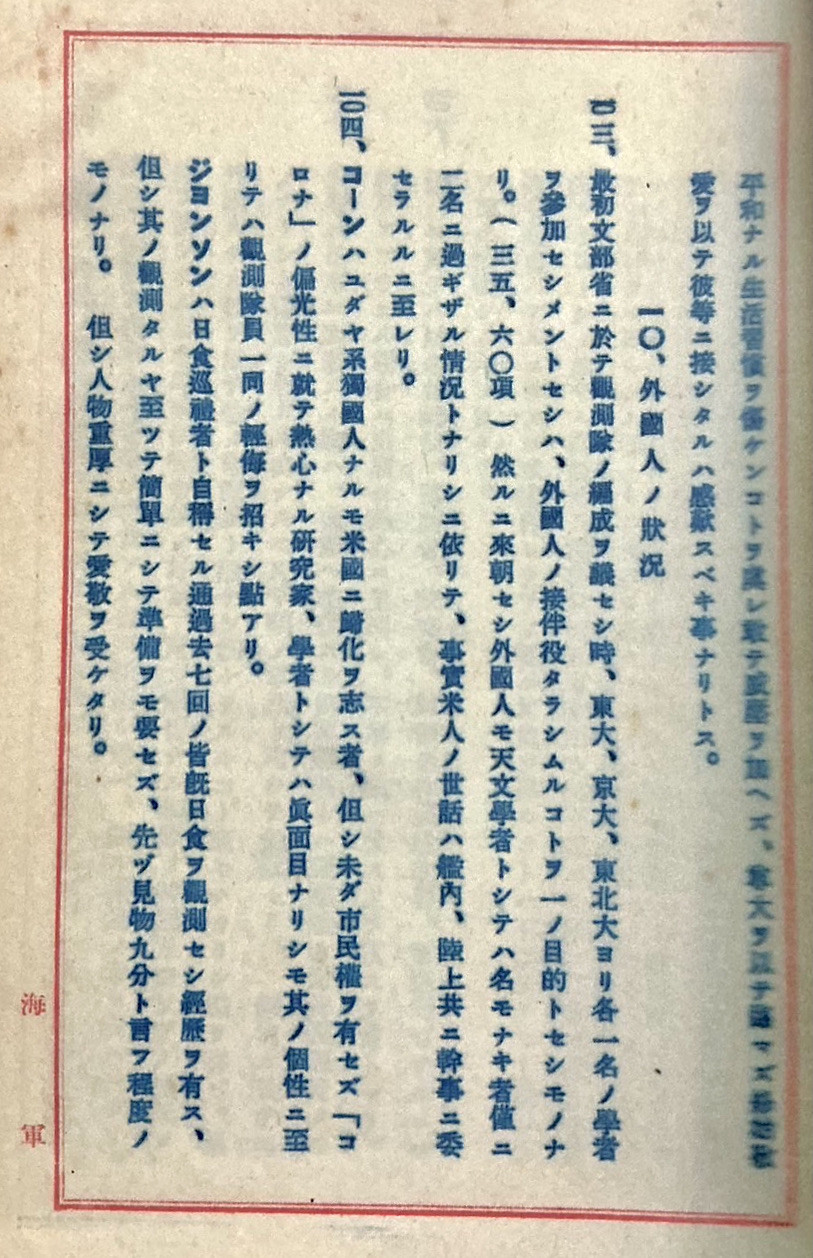 平和ナル生活習慣ヲ傷ケンコトヲ虞レ敢テ威壓ヲ加ヘズ、尊大ヲ以テ臨マズ
愛ヲ以テ彼等ニ接シタルハ感歎スベキ事ナリトス。
一〇、外國人ノ狀況
一〇三、最初文部省ニ於テ觀測隊ノ編成ヲ議セシ時、東大、京大、東北大ヨリ各一名ノ學者
ヲ參加セシメントセシハ、外國人ノ接伴役タラシムルコトヲ一ノ目的トセシモノナ
リ。（三五、六〇項）然ルニ來朝セシ外國人モ天文學者トシテハ名モナキ者僅ニ
二名ニ過ギザル情況トナリシニ依リテ、事實米人ノ世話ハ艦內、陸上共ニ幹事ニ委
セラルルニ至レリ。
一〇四、コーンハユダヤ系獨國人ナルモ米國ニ歸化ヲ志ス者、但シ未ダ市民權ヲ有セズ「コ
ロナ」ノ偏光性ニ就テ熱心ナル研究家、學者トシテハ眞面目ナリシモ其ノ個性ニ至
リテハ觀測隊員一同ノ輕侮ヲ招キシ點アリ。
ジヨンソンハ日食巡禮者ト自稱セル通過去七回ノ皆旣日食ヲ觀測セシ經歷ヲ有ス、
但シ其ノ觀測タルヤ至ツテ簡單ニシテ準備ヲモ要セズ、先ヅ見物九分ト言フ程度ノ
モノナリ。但シ人物重厚ニシテ愛敬ヲ受ケタリ。
海軍